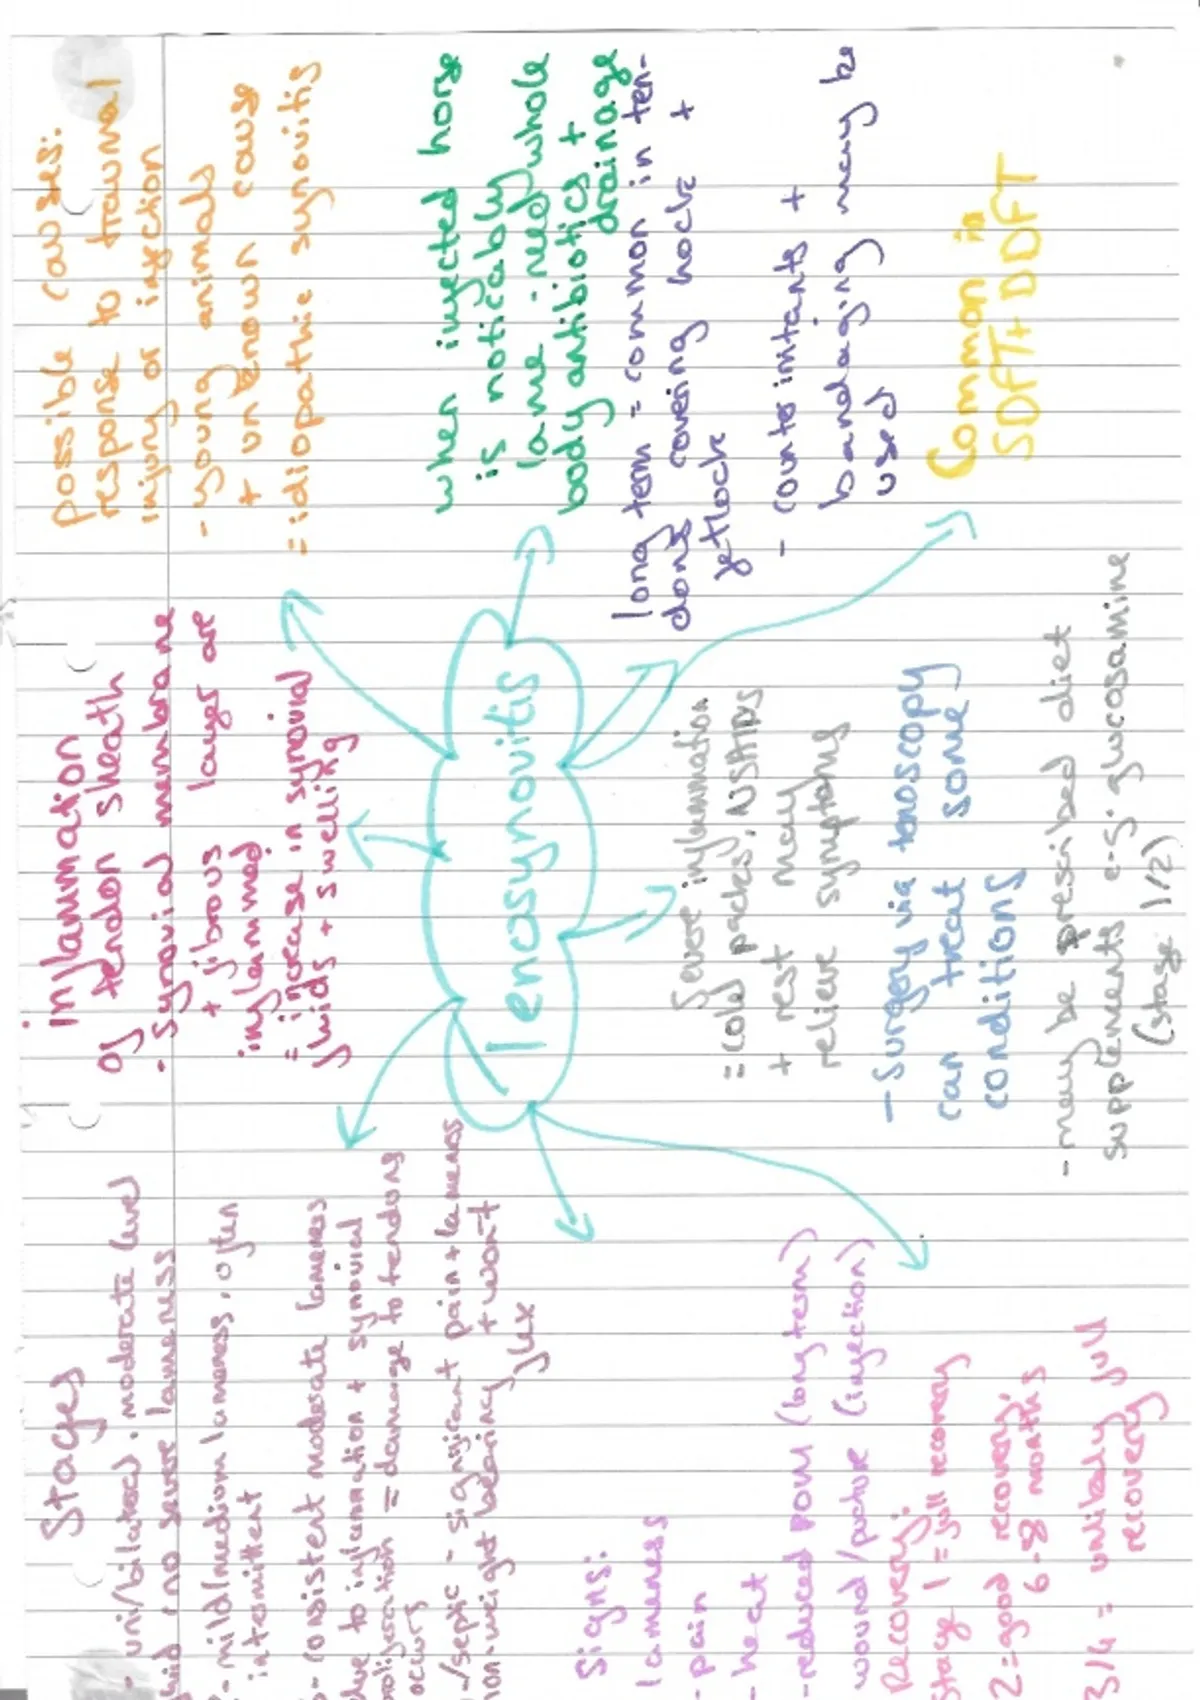 Tenosynovitis
Stages
- uni/bilateral, moderate level
fluid (no severe lameness
- mild/medium lameness, often
intermittent
- consistent moderate lameness
due to inflammation + synovial
proliferation = damage to tendons
occurs
-/septic - significant pain + lameness
non-weight bearing + won't
flex
inflammation
of tendon sheath
- synovial membrane
+ fibrous layer are
inflammed
= increase in synovial
fluids + swelling
possible causes:
response to trauma
injury or infection
- young animals
+ unknown cause
= idiopathic synovitis
when infected horse
is noticably
lame - need whole
body antibiotics +
drainage
long term = common in ten-
dons covering hock +
fetlock
- counter irritants +
bandaging may be
used
Common in
SDFT + DDFT
Severe inflammation
= cold packs, NSAIDs
+ rest may
relieve symptoms
- Surgery via tenoscopy
can treat some
conditions
- may be prescribed diet
supplements e.g. glucosamine
(stage 1/2)
Signs:
lameness
- pain
- heat
- reduced
wound/
(long term)
(infection)
Recovery:
Stage 1 = full recovery
2 = good recovery,
6-8 months
3/4 = unlikely full
recovery